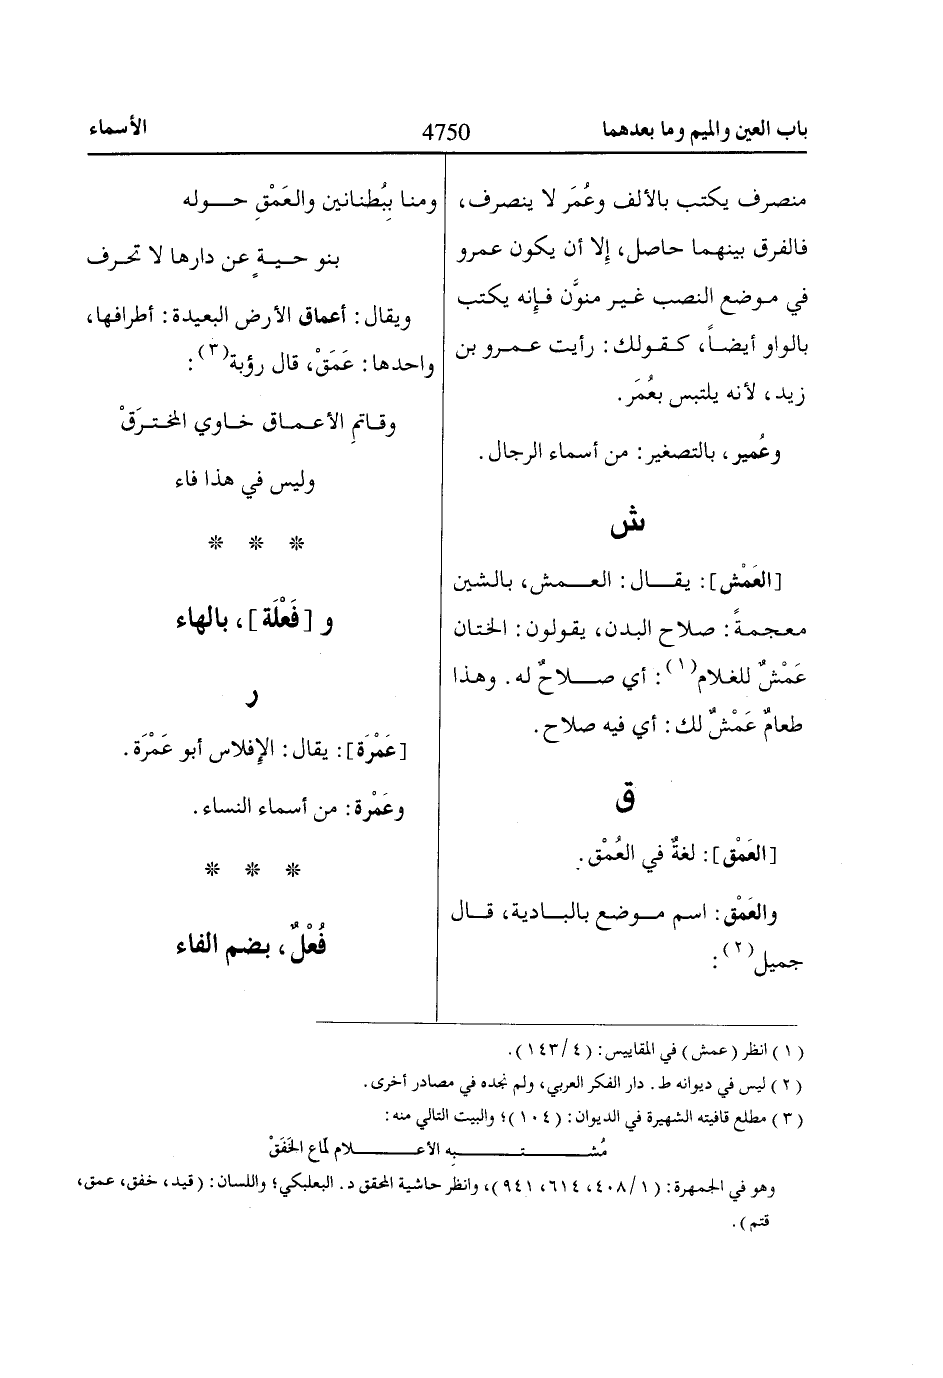 باب العين والميم وما بعدهما 4750 الأسماء
منصرف يكتب بالألف وعُمَر لا ينصرف،
فالفرق بينهما حاصل، إلا أن يكون عمرو
في موضع النصب غير منوَّن فإنه يكتب
بالواو أيضاً، كقولك: رأيت عمرو بن
زيد، لأنه يلتبس بعُمَر.
وعُمير، بالتصغير: من أسماء الرجال.
ش
[العَمْش]: يقال: العمش، بالشين
معجمةً: صلاح البدن، يقولون: الختان
عَمْشٌ للغلام(١): أي صلاحٌ له. وهذا
طعامٌ عَمْشٌ لك: أي فيه صلاح.
ق
[العَمْق]: لغةٌ في العُمْق.
والعَمْق: اسم موضع بالبادية، قال
جميل(٢):
ومنا ببُطنانين والعَمْقِ حوله
بنو حيةٍ عن دارها لا تحرف
ويقال: أعماق الأرض البعيدة: أطرافها،
واحدها: عَمَقْ، قال رؤبة(٣):
وقاتمِ الأعماق خاوي المخترَقْ
وليس في هذا فاء
* * *
و [فَعْلَة]، بالهاء
ر
[عَمْرَة]: يقال: الإفلاس أبو عَمْرَة.
وعَمْرة: من أسماء النساء.
* * *
فُعْلٌ، بضم الفاء
(١) انظر (عمش) في المقاييس: (٤/١٤٣).
(٢) ليس في ديوانه ط. دار الفكر العربي، ولم نجده في مصادر أخرى.
(٣) مطلع قافيته الشهيرة في الديوان: (١٠٤)؛ والبيت التالي منه:
مُشتبهِ الأعلام لماع الخَفَقْ
وهو في الجمهرة: (١/٤٠٨، ٦١٤، ٩٤١)، وانظر حاشية المحقق د. البعلبكي؛ واللسان: (قيد، خفق، عمق،
قتم).